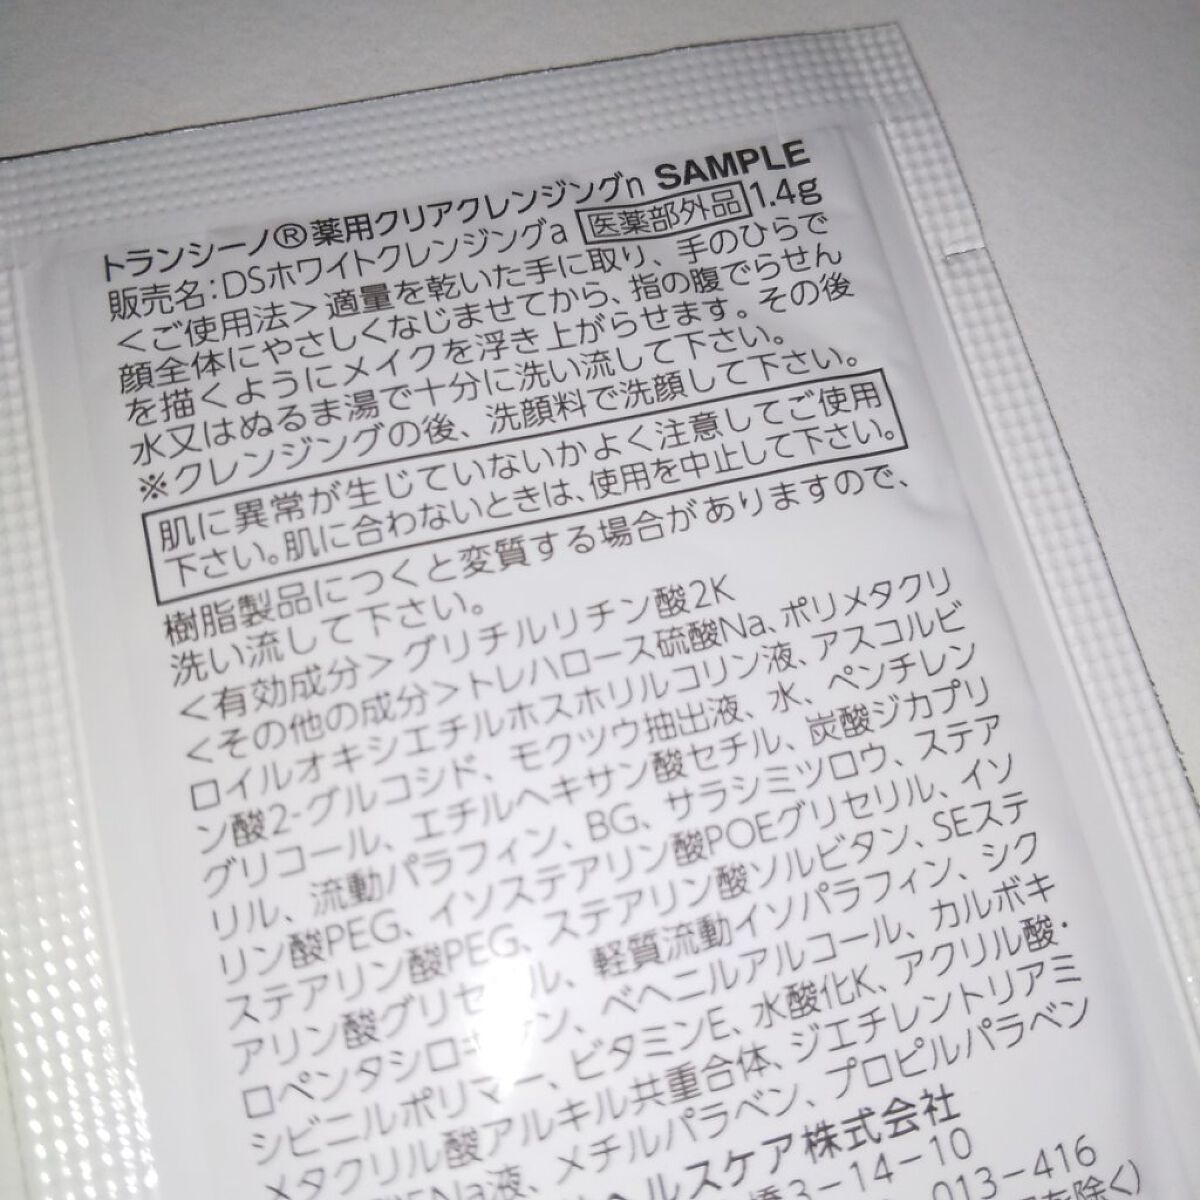 トランシーノ®薬用クリアクレンジングn SAMPLE
販売名:DSホワイトクレンジングa 医薬部外品 1.4g
<ご使用法>適量を乾いた手に取り、手のひらで
顔全体にやさしくなじませてから、指の腹でらせん
を描くようにメイクを浮き上がらせます。その後
水又はぬるま湯で十分に洗い流して下さい。
※クレンジングの後、洗顔料で洗顔して下さい。
肌に異常が生じていないかよく注意してご使用
下さい。肌に合わないときは、使用を中止して下さい。
樹脂製品につくと変質する場合がありますので、
洗い流して下さい。
<有効成分>グリチルリチン酸2K
<その他の成分>トレハロース硫酸Na、ポリメタクリ
ロイルオキシエチルホスホリルコリン液、アスコルビ
ン酸2-グルコシド、モクツウ抽出液、水、ペンチレン
グリコール、エチルヘキサン酸セチル、炭酸ジカプリ
リル、流動パラフィン、BG、サラシミツロウ、ステア
リン酸PEG、イソステアリン酸POEグリセリル、イソ
ステアリン酸PEG、ステアリン酸ソルビタン、SEステ
アリン酸グリセリル、軽質流動イソパラフィン、シク
ロペンタシロキサン、ベヘニルアルコール、カルボキ
シビニルポリマー、ビタミンE、水酸化K、アクリル酸・
メタクリル酸アルキル共重合体、ジエチレントリアミ
Na液、メチルパラベン、プロピルパラベン
ヘルスケア株式会社
3-14-10
013-416
除く)